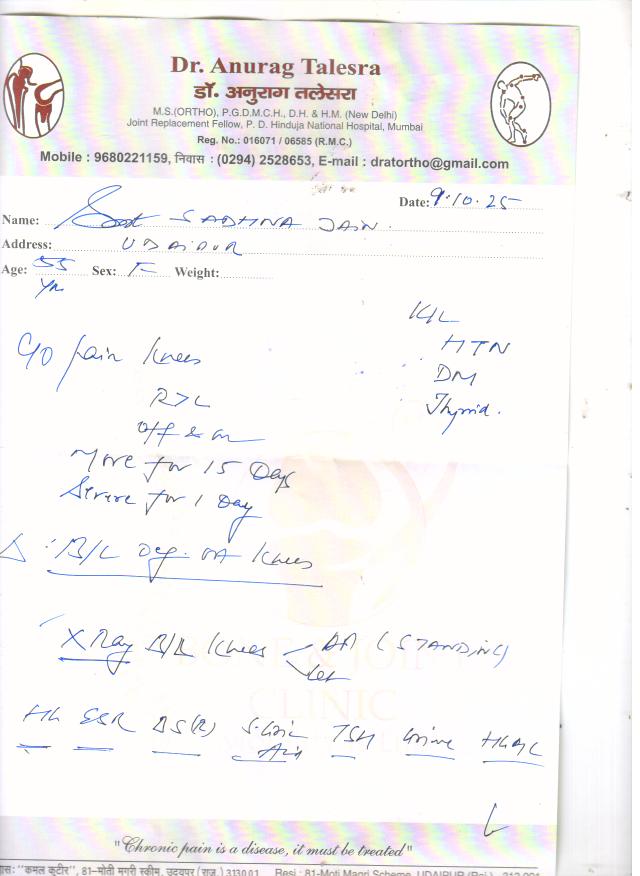 Dr. Anurag Talesra
डॉ. अनुराग तलेसरा
M.S.(ORTHO), P.G.D.M.C.H., D.H. & H.M. (New Delhi)
Joint Replacement Fellow, P. D. Hinduja National Hospital, Mumbai
Reg. No.: 016071 / 06585 (R.M.C.)
Mobile : 9680221159, निवास : (0294) 2528653, E-mail : dratortho@gmail.com
Date: 9.10.25
Name: SADHNA JAIN
Address: UDAIPUR
Age: 55 Yrs Sex: F Weight:
K/C
HTN
DM
Thyroid.
C/O pain Knees
R>L
Off & on
More for 15 Days
Severe for 1 Day
Δ : B/L Deg. OA Knees
X Ray B/L Knees AP (STANDING)
Lat
Hb ESR BS(R) S. Uric Acid TSH Urine HbA1C
CLINIC
"Chronic pain is a disease, it must be treated"
"कमल कुटीर", 81-मोती मगरी स्कीम, उदयपुर (राज.) 313001 Resi : 81-Moti Magri Scheme, UDAIPUR (Raj.)